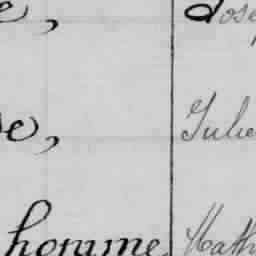 e, Jose
se, Julie
homme Math